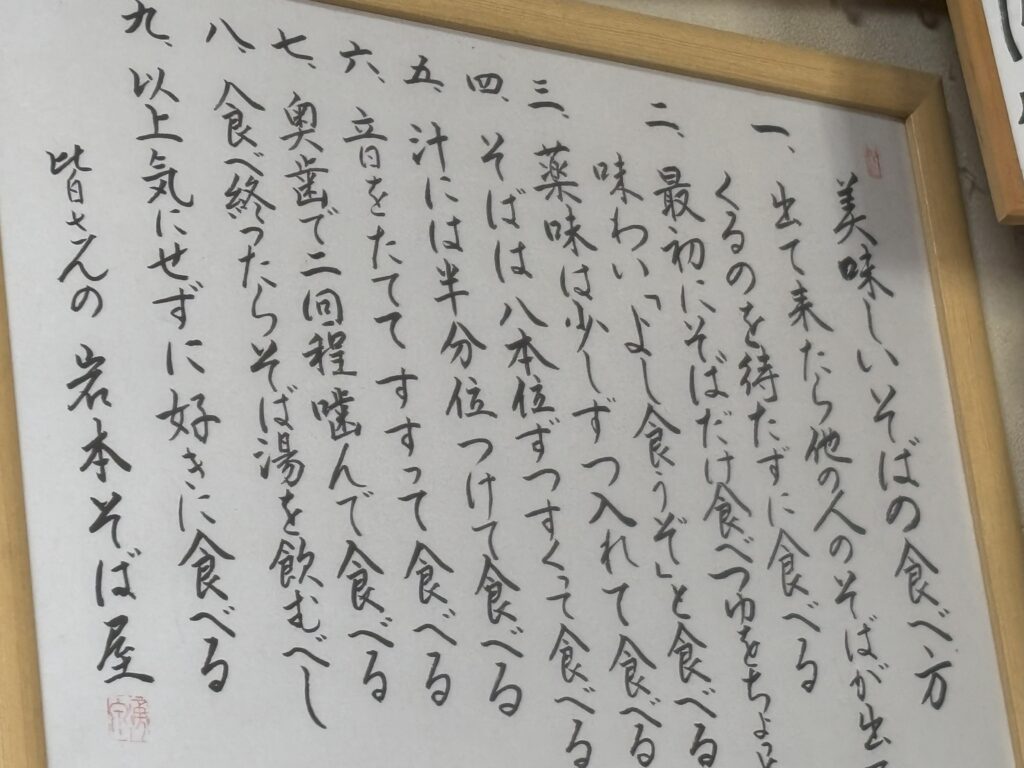 美味しいそばの食べ方
一、出て来たら他の人のそばが出
くるのを待たずに食べる
二、最初にそばだけ食べつゆをちょっと
味わい「よし食うぞ」と食べる
三、薬味は少しずつ入れて食べる
四、そばは八本位ずつすくって食べる
五、汁には半分位つけて食べる
六、音をたててすすって食べる
七、奥歯で二回程噛んで食べる
八、食べ終ったらそば湯を飲むべし
九、以上気にせずに好きに食べる
皆さんの 岩本そば屋